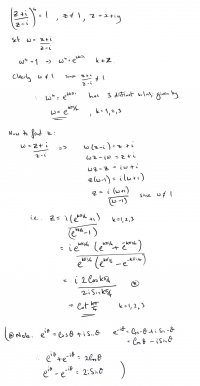 (z+i / z-i)^4 = 1 , z≠1, z = x+iy
Set w = z+i / z-i
w^4 = 1 → w^4 = e^2kπi k∈Z.
Clearly w≠1 since z+i / z-i ≠ 1
∴ w^4 = e^2kπi has 3 distinct solns given by
w = e^kπi/2 , k=1,2,3
Now to find z:
w = z+i / z-i ⟹ w(z-i) = z+i
wz - iw = z+i
wz - z = iw + i
z(w-1) = i(w+1)
z = i (w+1) / (w-1) since w≠1
i.e. z = i (e^kπi/2 +1) / (e^kπi/2 -1) k=1,2,3
= i e^kπi/4 (e^kπi/4 + e^-kπi/4) / e^kπi/4 (e^kπi/4 - e^-kπi/4)
= i 2cos kπ/4 / 2i sin kπ/4 ⊛
= cot kπ/4 k=1,2,3
(⊛ Note: e^iθ = cosθ + i sinθ e^-iθ = cos-θ + i sin-θ
= cosθ - i sinθ
∴ e^iθ + e^-iθ = 2cosθ
e^iθ - e^-iθ = 2i sinθ )